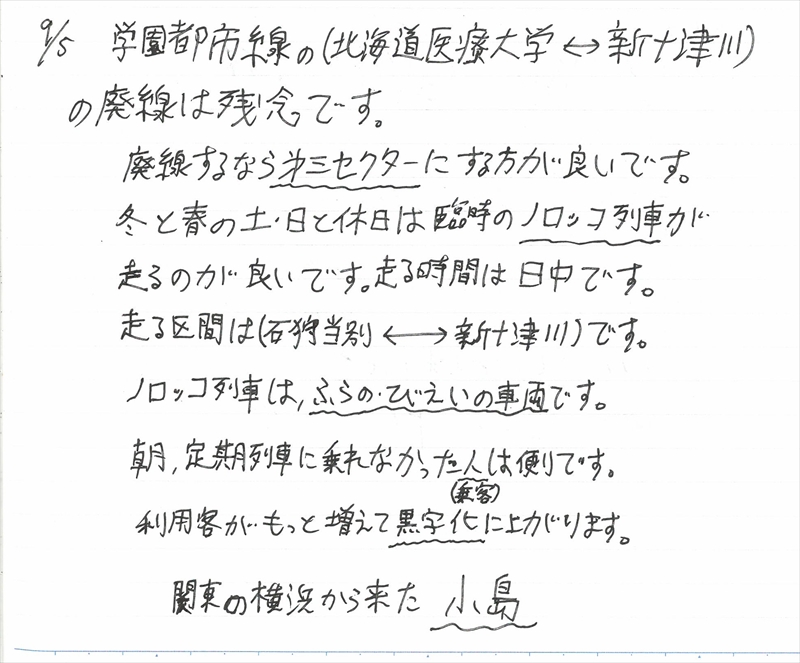 9/5 学園都市線の(北海道医療大学↔新十津川)
の廃線は残念です。
廃線するなら㐧三セクターにする方が良いです。
冬と春の土・日と休日は臨時のノロッコ列車が
走るのが良いです。走る時間は日中です。
走る区間は(石狩当別⟷新十津川)です。
ノロッコ列車は,ふらの・びえいの車両です。
朝,定期列車に乗れなかった人は便りです。
(乗客)
利用客がもっと増えて黒字化に上がります。
関東の横浜から来た 小島